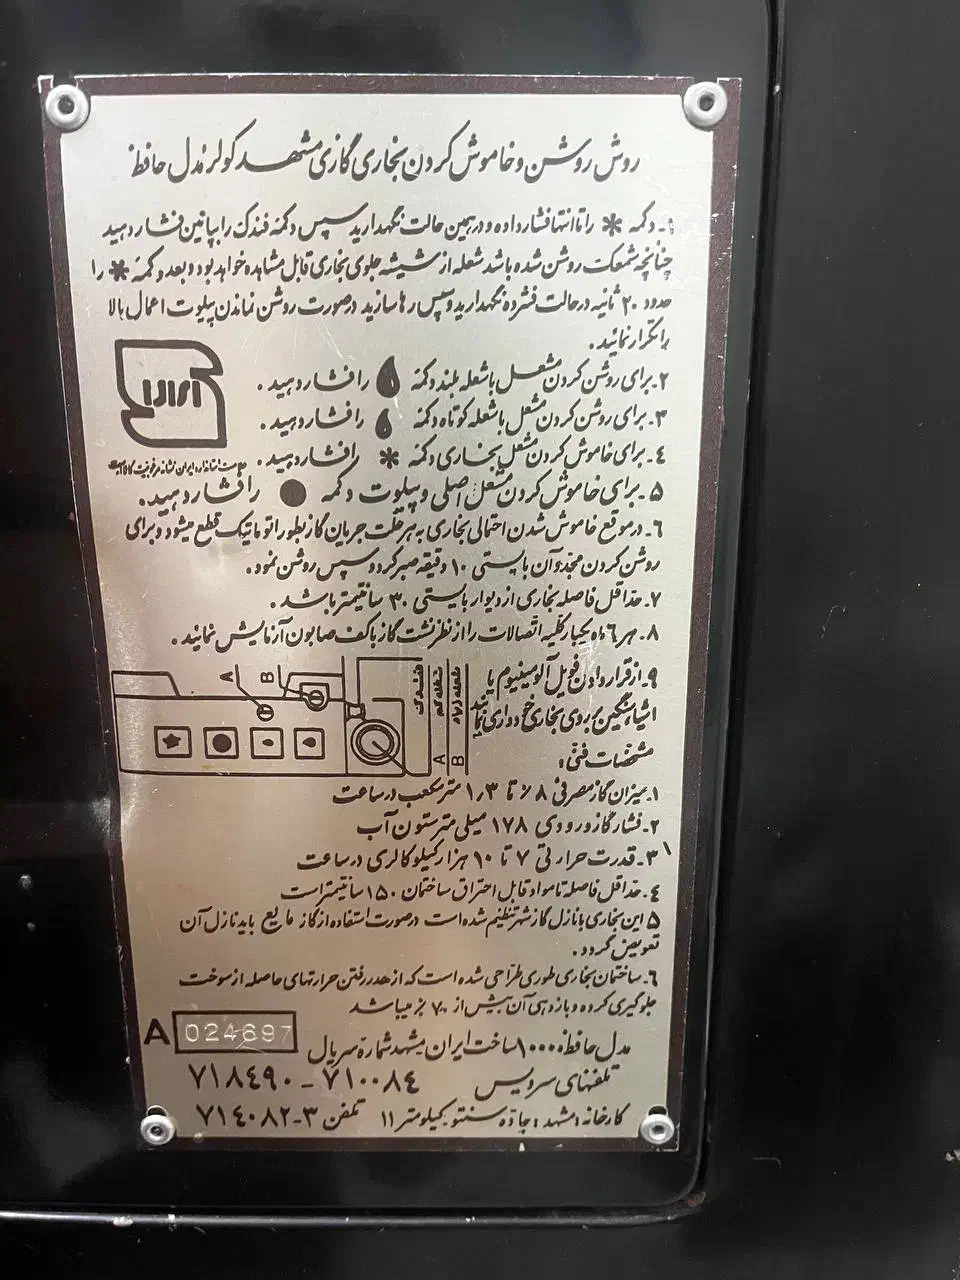 روش روشن و خاموش کردن بخاری گازی مشهد کولر مدل حافظ
۱ـ دکمه * را تا انتها فشار داده و در همین حالت نگهدارید سپس دکمه فندک را بپائین فشار دهید
چنانچه شمعک روشن شده باشد شعله از شیشه جلوی بخاری قابل مشاهده خواهد بود و بعد دکمه * را
حدود ۲۰ ثانیه در حالت فشرده نگهدارید و سپس رها سازید در صورت روشن نماندن پیلوت اعمال بالا
را تکرار نمائید .
۲ـ برای روشن کردن مشعل با شعله بلند دکمه را فشار دهید .
۳ـ برای روشن کردن مشعل با شعله کوتاه دکمه را فشار دهید .
۴ـ برای خاموش کردن مشعل بخاری دکمه * را فشار دهید .
علامت استاندارد ایران نشانه مرغوبیت کالا است
۵ـ برای خاموش کردن مشعل اصلی و پیلوت دکمه ● را فشار دهید .
۶ـ در موقع خاموش شدن احتمالی بخاری به هر علت جریان گاز بطور اتوماتیک قطع میشود و برای
روشن کردن مجدد آن بایستی ۱۰ دقیقه صبر کرد و سپس روشن نمود .
۷ـ حداقل فاصله بخاری از دیوار بایستی ۳۰ سانتیمتر باشد .
۸ـ هر ۶ ماه یکبار کلیه اتصالات را از نظر نشت گاز با کف صابون آزمایش نمایند .
۹ـ از قرار دادن فویل آلومینیوم یا
اشیاء سنگین بر روی بخاری خودداری نمائید
A B
فندک
شعله کم A
شعله زیاد B
مشخصات فنی :
۱ـ میزان گاز مصرفی ۶۸٪ تا ۱٫۳ متر مکعب در ساعت
۲ـ فشار گاز ورودی ۱۷۸ میلی متر ستون آب
۳ـ قدرت حرارتی ۷ تا ۱۰ هزار کیلو کالری در ساعت
۴ـ حداقل فاصله تا مواد قابل احتراق ساختمان ۱۵۰ سانتیمتر است
۵ این بخاری با نازل گاز شهر تنظیم شده است در صورت استفاده از گاز مایع باید نازل آن
تعویض گردد .
۶ـ ساختمان بخاری طوری طراحی شده است که از هدر رفتن حرارتهای حاصله از سوخت
جلوگیری کرده و بازدهی آن بیش از ۷۰٪ میباشد
مدل حافظ ۱۰۰۰۰ ساخت ایران مشهد شماره سریال A 024697
تلفنهای سرویس ۷۱۰۰۸۴ ـ ۷۱۸۴۹۰
کارخانه : مشهد ، جاده سنتو کیلومتر ۱۱ تلفن ۳-۷۱۴۰۸۲